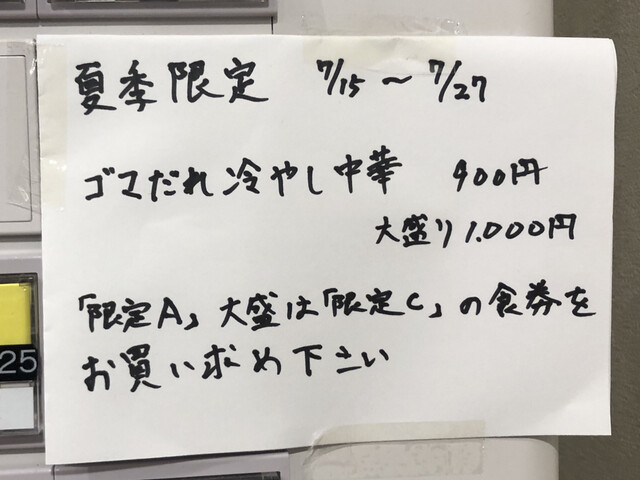 夏季限定 7/15～7/27
ゴマだれ冷やし中華 900円
大盛り1.000円
「限定A」大盛は「限定C」の食券を
お買い求め下さい
25